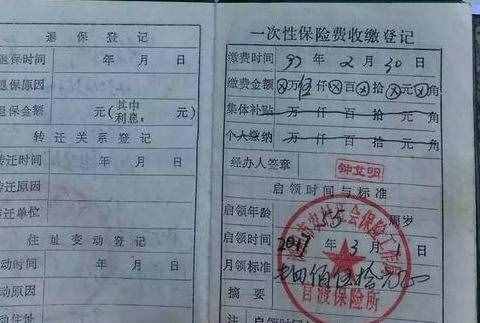 退保登记
退保时间 年 月 日
退保原因
退保金额 元(其中利息: 元)
转迁关系登记
转迁时间 年 月 日
转迁原因
转迁单位
住址变动登记
动时间 年 月 日
动原因
一次性保险费收缴登记
缴费时间 年 2 月 30 日
缴费金额 万伍仟 百 拾 元 角
集体补贴 万 仟 百 拾 元 角
个人缴纳 万 仟 百 拾 元 角
经办人签章
启领时间与标准
启领年龄 55 周岁
启领时间 2017年 3 月 1 日
月领标准 佰伍拾元
摘要
官渡保险所